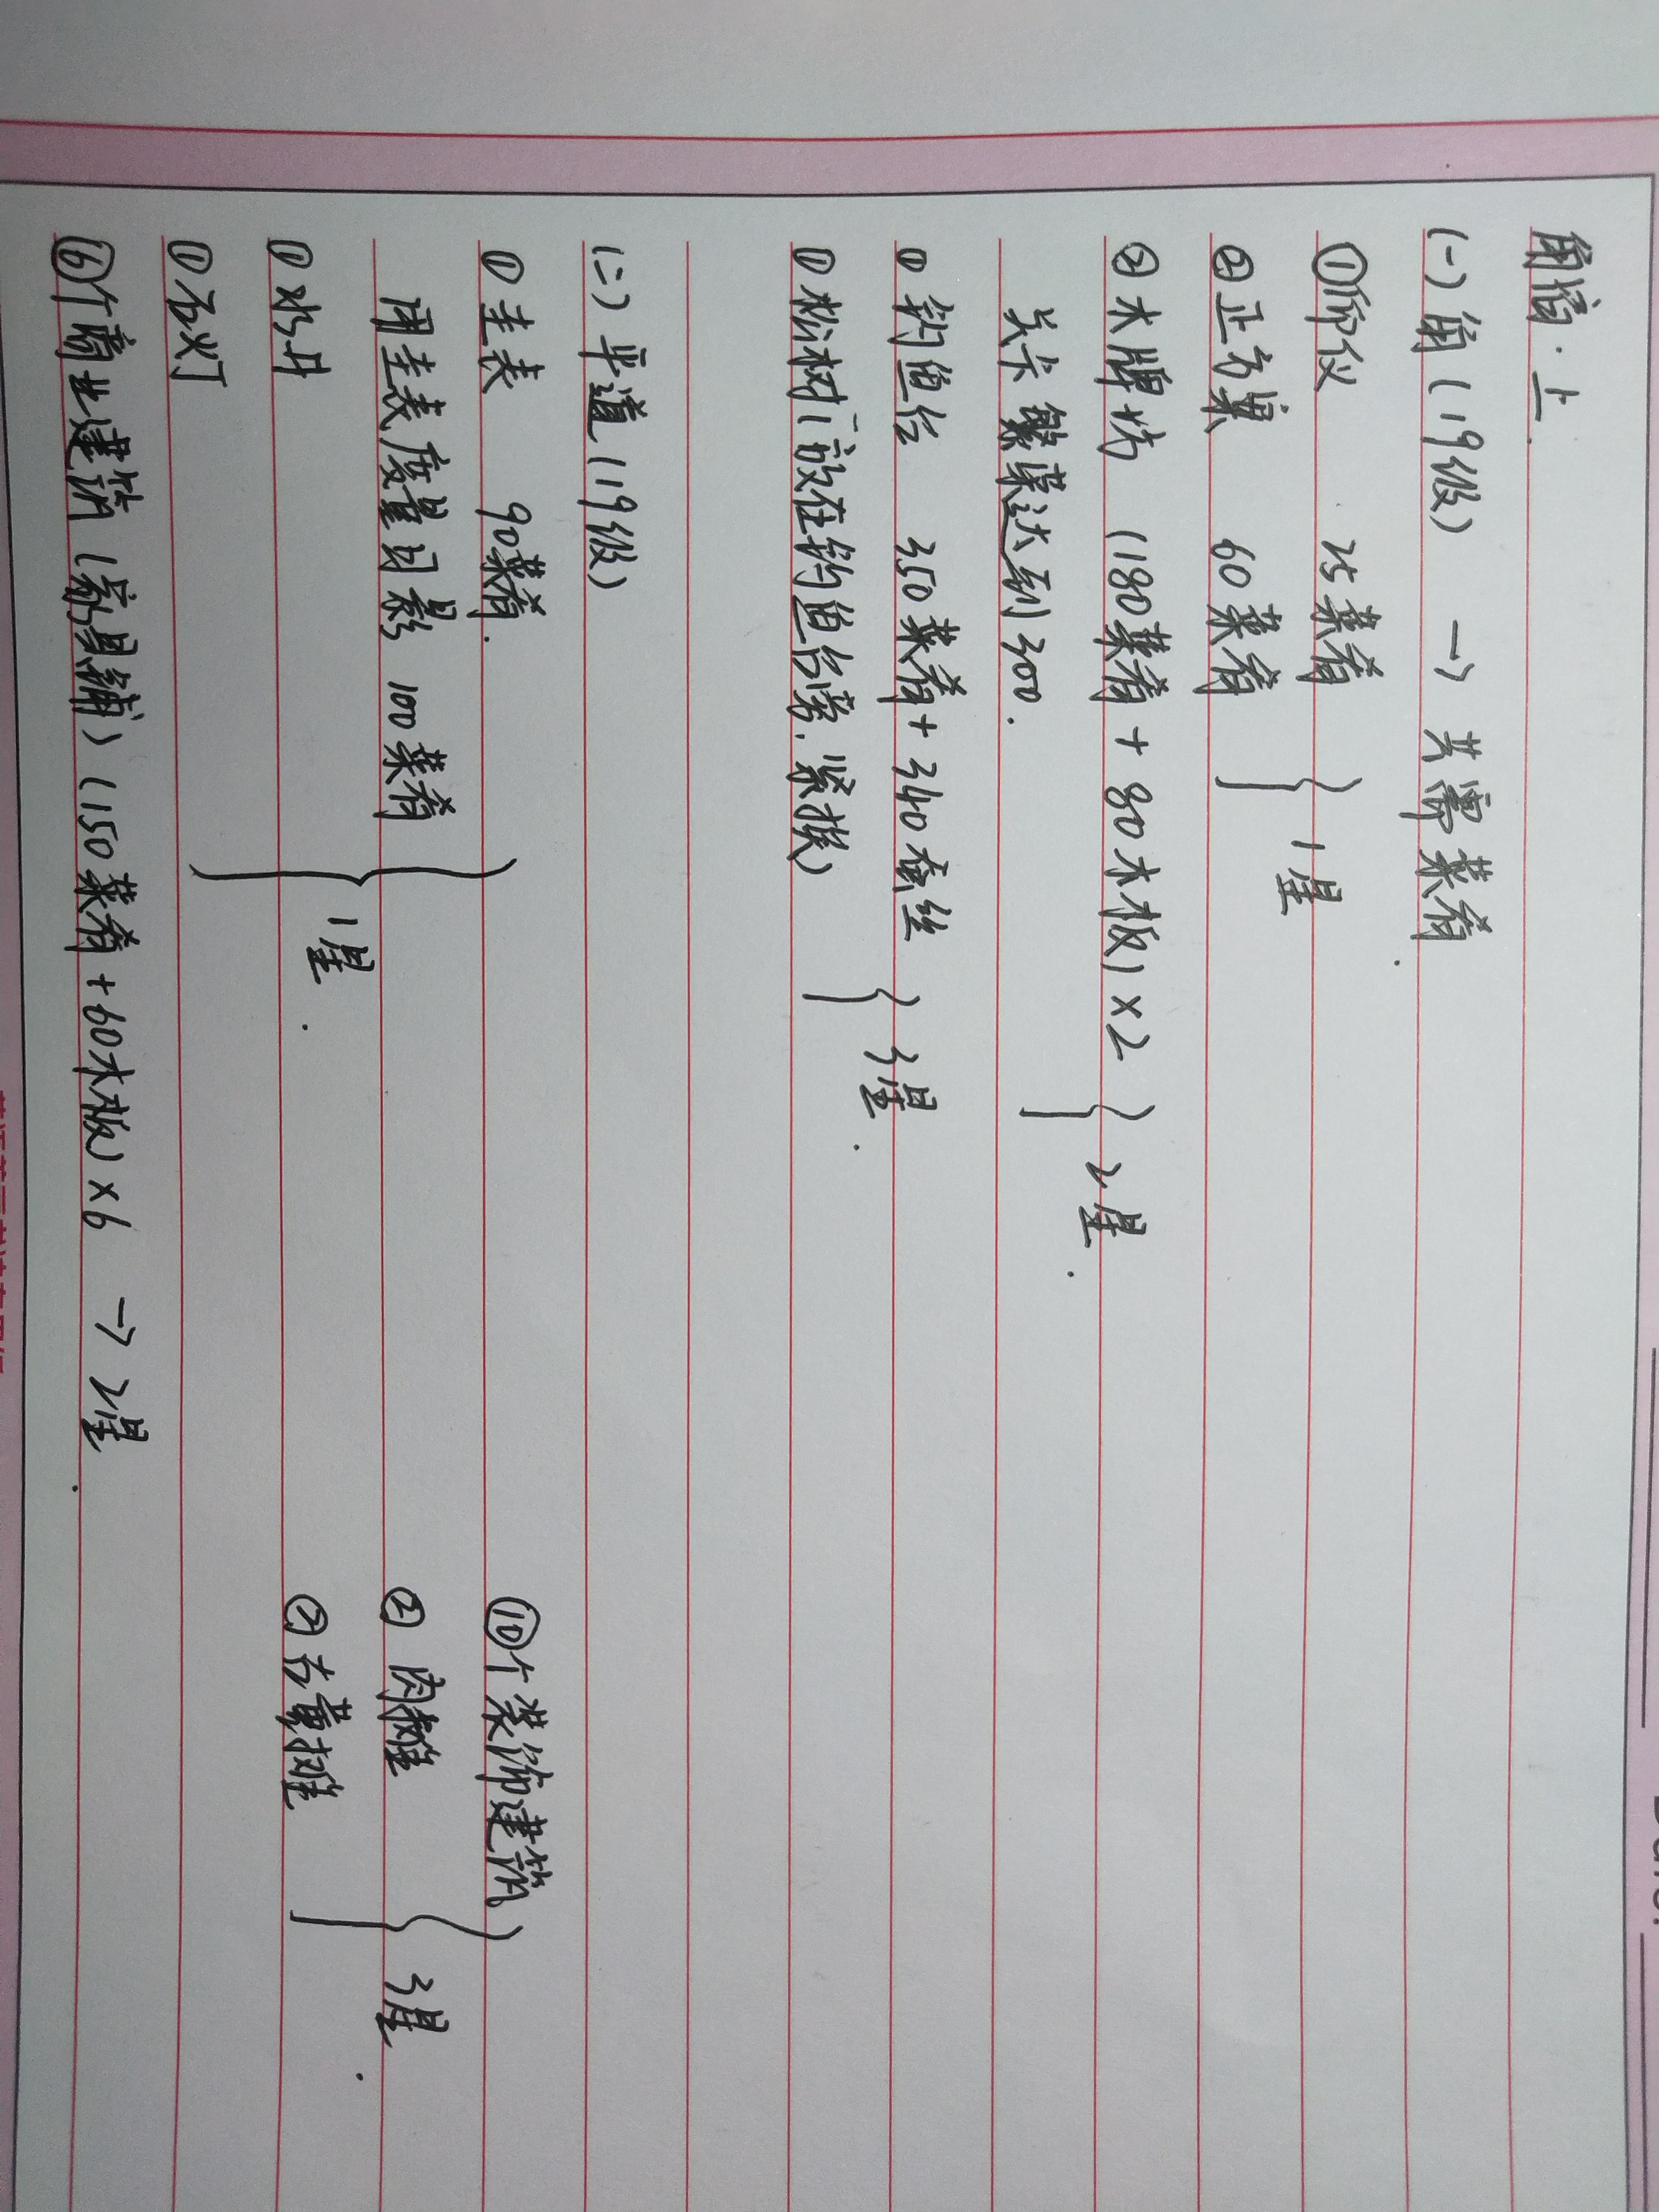 角宿·上
(一) 角 (19级) → 共需菜肴.
①仰仪 25菜肴 } 1星
②正方案 60菜肴
②木牌坊 (180菜肴 + 80木板) ×2 } 2星.
关卡繁荣达到300.
①钓鱼台 350菜肴 + 340蚕丝 } 3星.
①松树 (放在钓鱼台旁, 紧挨)
(二) 平道 (19级)
①圭表 90菜肴.
用圭表度量日影 100菜肴 } 1星.
①水井
①石灯
⑥个商业建筑 (家具铺) (150菜肴+60木板) ×6 → 2星.
⑩个装饰建筑
② 肉摊 } 3星.
② 古董摊